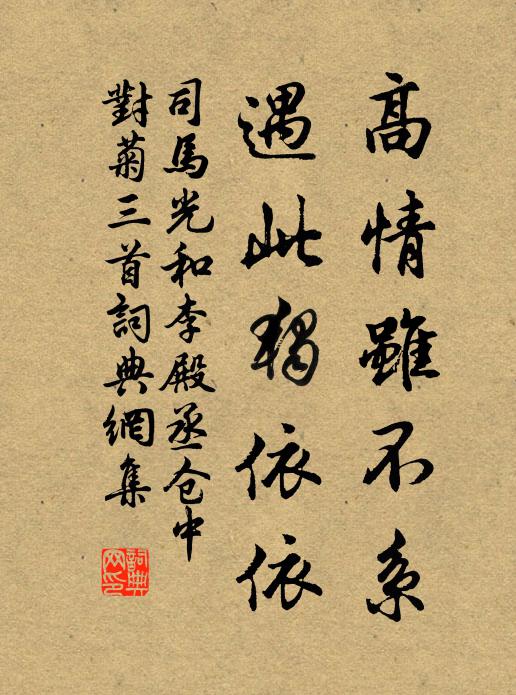 高情雖不系
遇此獨依依
司馬光和李殿丞仓中
對菊三首詞典網集
詞典
网印